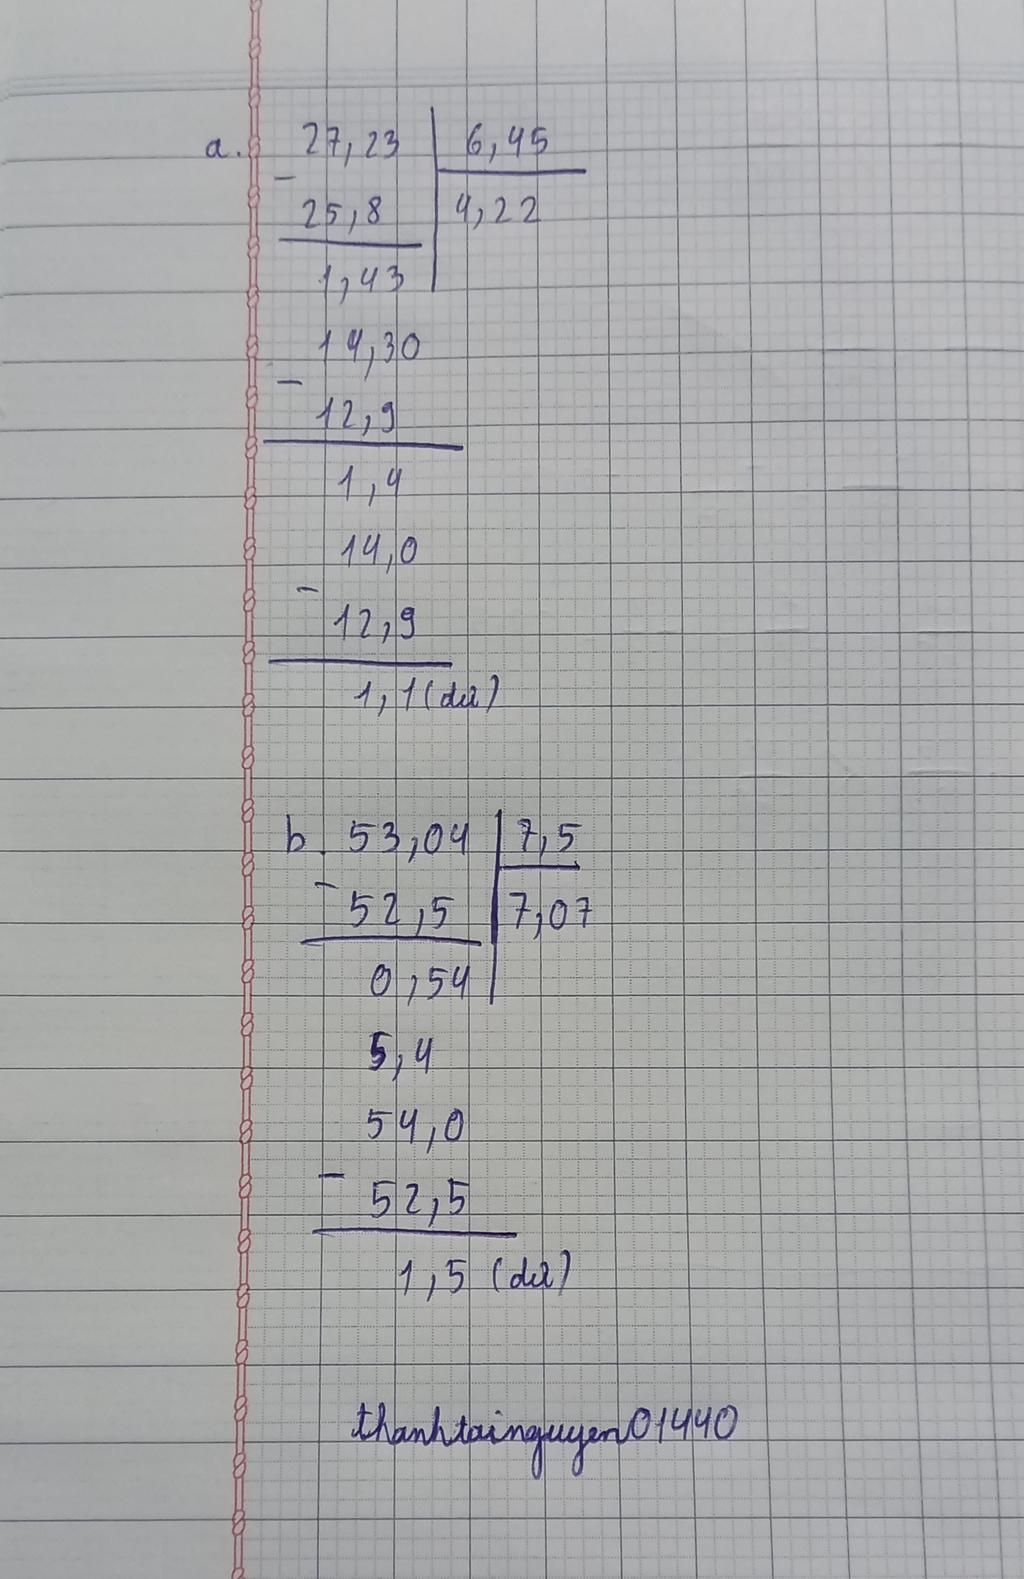 a. 27,23 6,45
- 25,8 4,22
1,43
14,30
- 12,9
1,4
14,0
- 12,9
1,1 (dư)
b. 53,04 7,5
- 52,5 7,07
0,54
5,4
54,0
- 52,5
1,5 (dư)
thanhtainguyen01440